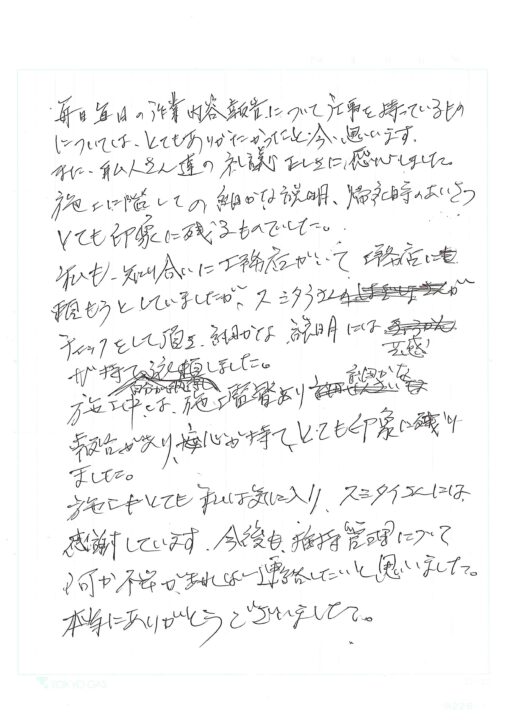 毎日毎日の作業内容報告について仕事を持っているもの
については、とてもありがたかったと今思います。
また、職人さん達の礼儀正しさに感心しました。
施工に際しての細かな説明、帰社時のあいさつ
とても印象に残るものでした。
私も、知り合いに工務店がいて 工務店に
頼もうとしていましたが、スミタイエムが
チェックをして頂き、細かな説明には 共感
が持て、依頼しました。
施工中は、施工監督より 細かな
報告があり、安心が持て、とても印象に残り
ました。
施工もとても私は気に入り、スミタイエムには
感謝しています。今後も、維持管理について
何か不安があれば連絡したいと思いました。
本当にありがとうございました。
TOKYO GAS